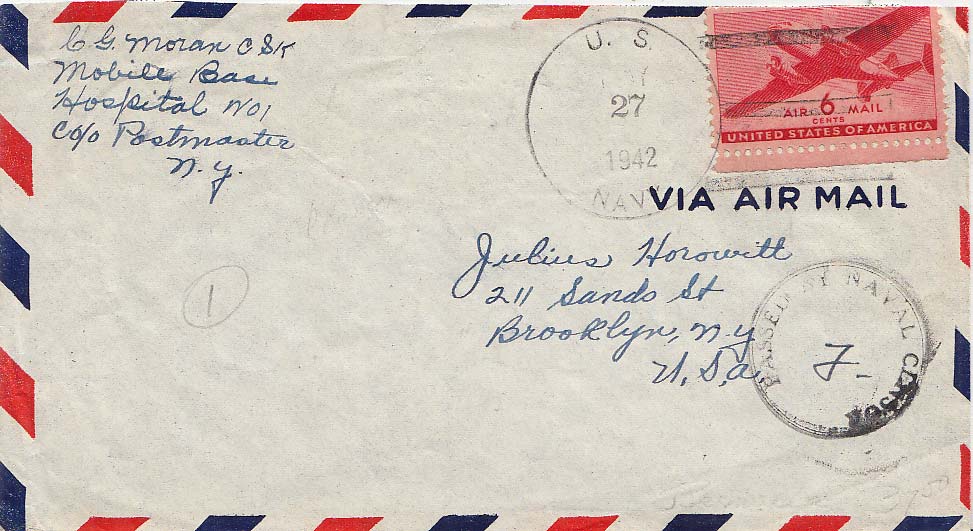 C G. Moran C S K
Mobile Base
Hospital No 1
C/o Postmaster
N. Y.
U. S.
27
1942
NAVY
AIR 6 MAIL
CENTS
UNITED STATES OF AMERICA
VIA AIR MAIL
Julius Horowitt
211 Sands St
Brooklyn, N.Y
U. S. a
PASSED BY NAVAL CENSOR
J.
1